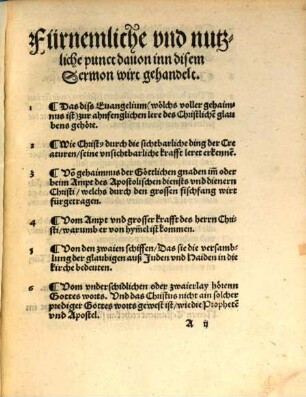 Fürnemliche vnd nutz-
liche punct dauon inn disem
Sermon wirt gehandelt.
1 ¶ Das diss Euangelium/ wölchs voller gehaim-
nus ist/ zur ahnfenglichen lere des Christlichē glau
bens gehört.
2 ¶ Wie Christ9 durch die sichtbarliche ding der Cre
aturen/ seine vnsichtbarliche krafft leret erkennē.
3 ¶ Vō gehaimnus der Göttlichen gnaden im̄ oder
beim Ampt des Apostolischen diensts vnd dienern
Christi/ welchs durch den grossen fischfang wirt
fürgetragen.
4 ¶ Vom Ampt vnd grosser krafft des herrn Chri-
sti/ warumb er von hymel ist kommen.
5 ¶ Von den zwaien schiffen/ Das sie die versamb-
lung der glaubigen auß Juden vnd Haiden in die
kirche bedeuten.
6 ¶ Vom vnderschidlichen oder zwaierlay hörenn
Gottes worts. Vnd das Christus nicht ain solcher
prediger Gottes worts gewest ist/ wie die Prophetē
vnd Apostel.
A ij